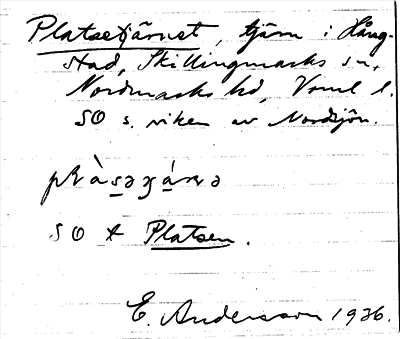 Platsetjärnet, tjärn i Hång-
stad, Skillingmarks sn,
Nordmarks hd, Vrml l.
SO s. viken av Nordsjön.
SO &
Platsen.
E. Andersson 1936.